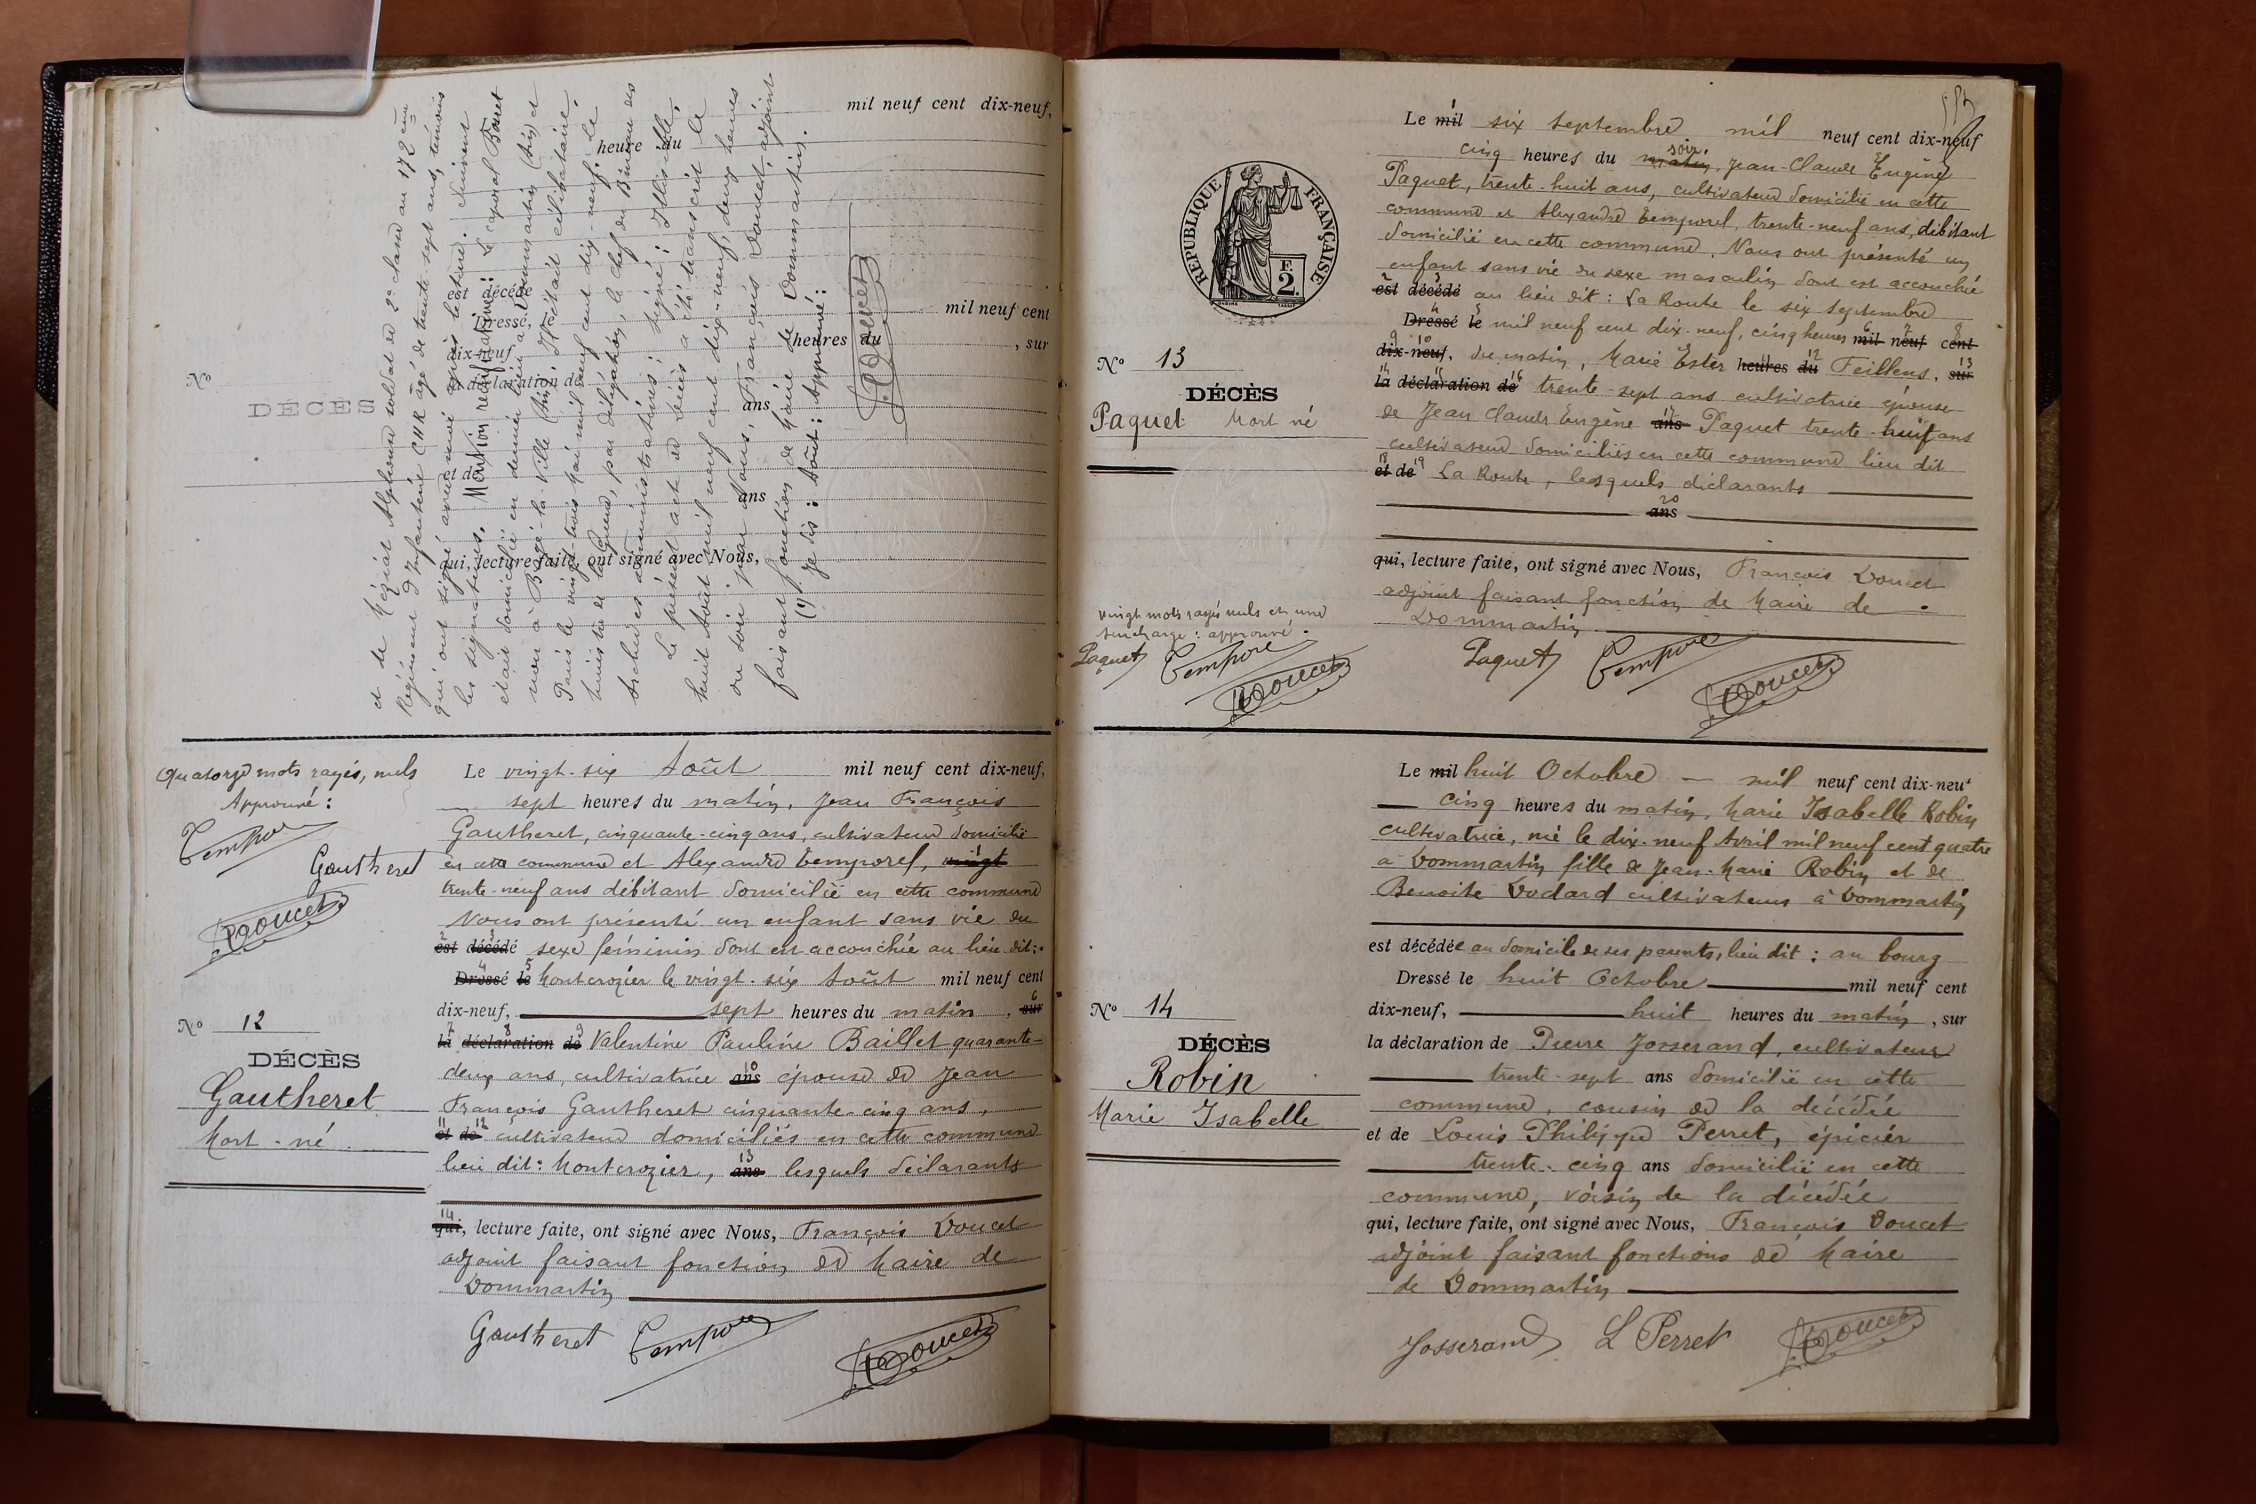 mil neuf cent dix-neuf,
heure du
est décédé
Dressé, le mil neuf cent
dix-neuf heures du , sur
la déclaration de
ans
et de
ans
qui, lecture faite, ont signé avec Nous,
Nº
DÉCÈS
et de Méziat Alphonse soldat de 2e classe au 172 eme
Régiment d'Infanterie CHR âgé de trente-sept ans, témoins
qui ont signé avec moi après lecture. Suivent
les signatures. Mention renfermant: Le caporal Bouret
était domicilié en dernier lieu à Dommartin (Ain) et
né à Bâgé-la-Ville (Ain). Il était célibataire.
Paris le vingt trois Mai mil neuf cent dix-neuf. Le
Ministre de la Guerre, par délégation, le chef du Bureau des
Archives administratives signé: Illisible.
Le présent acte de décès a été transcrit le
huit Août mil neuf cent dix-neuf, deux heures
du soir par Nous, François Doucet, adjoint
faisant fonction de Maire de Dommartin.
(1) Je dis: Août: Approuvé:
Doucet
Quatorze mots rayés, nuls
Approuvé:
Tempor
Gautheret
Doucet
Nº 12
DÉCÈS
Gautheret
Mort-né
Le vingt-six Août mil neuf cent dix-neuf,
sept heures du matin, Jean François
Gautheret, cinquante-cinq ans, cultivateur domicilié
en cette commune et Alexandre Temporel, vingt 1
trente-neuf ans débitant domicilié en cette commune
Nous ont présenté un enfant sans vie du
2 3
est décédé sexe féminin dont est accouchée au lieu dit:
4 5
Dressé le Montcrozier le vingt-six Août mil neuf cent
dix-neuf, sept heures du matin, sur 6
7 8 9
la déclaration de Valentine Pauline Baillet quarante-
deux ans, cultivatrice ans 10 épouse de Jean
François Gautheret cinquante-cinq ans,
11 12
et de cultivateur domiciliés en cette commune
lieu dit: Montcrozier, ans 13 lesquels déclarants
14
qui, lecture faite, ont signé avec Nous, François Doucet
adjoint faisant fonction de Maire de
Dommartin
Gautheret Tempor Doucet
Nº 13
DÉCÈS
Paquet Mort né
vingt mots rayés nuls et une
surcharge: approuvé.
Paquet Tempor
Doucet
RÉPUBLIQUE FRANÇAISE
F.
2.
Le mil six septembre mil neuf cent dix-neuf
cinq heures du matin soir, Jean-Claude Eugène
Paquet, trente-huit ans, cultivateur domicilié en cette
commune et Alexandre Temporel, trente-neuf ans, débitant
domicilié en cette commune. Nous ont présenté un
enfant sans vie du sexe masculin dont est accouchée
2 3
est décédé au lieu dit: La Route le six septembre
4 5
Dressé le mil neuf cent dix-neuf, cinq heures mil neuf cent
6 7 8
9 10
dix-neuf, du matin, Marie Ester heures du Feillens, sur
11 12 13
14 15 16
la déclaration de trente-sept ans cultivatrice épouse
de Jean Claude Eugène ans 17 Paquet trente-huit ans
cultivateur domiciliés en cette commune lieu dit
18 19
et de La Route, lesquels déclarants
20
ans
qui, lecture faite, ont signé avec Nous, François Doucet
adjoint faisant fonction de Maire de
Dommartin
Paquet Tempor Doucet
Nº 14
DÉCÈS
Robin
Marie Isabelle
Le mil huit Octobre mil neuf cent dix-neuf
cinq heures du matin, Marie Isabelle Robin
cultivatrice, née le dix-neuf Avril mil neuf cent quatre
à Dommartin fille de Jean-Marie Robin et de
Benoite Dodard cultivateurs à Dommartin
est décédée au domicile de ses parents, lieu dit: au bourg
Dressé le huit Octobre mil neuf cent
dix-neuf, huit heures du matin, sur
la déclaration de Pierre Josserand, cultivateur
trente-sept ans domicilié en cette
commune, cousin de la décédée
et de Louis Philippe Perret, épicier
trente-cinq ans domicilié en cette
commune, voisin de la décédée
qui, lecture faite, ont signé avec Nous, François Doucet
adjoint faisant fonctions de Maire
de Dommartin
Josserand L Perret Doucet